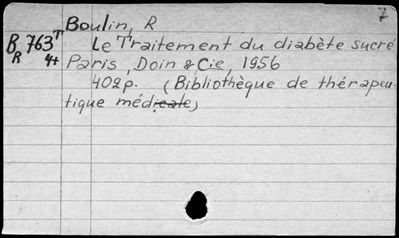 7
Boulin, R
B 763 T
R 4t
Le Traitement du diabète sucré
Paris, Doin & Cie, 1956
402p. (Bibliothèque de thérapeu-
tique médicale)